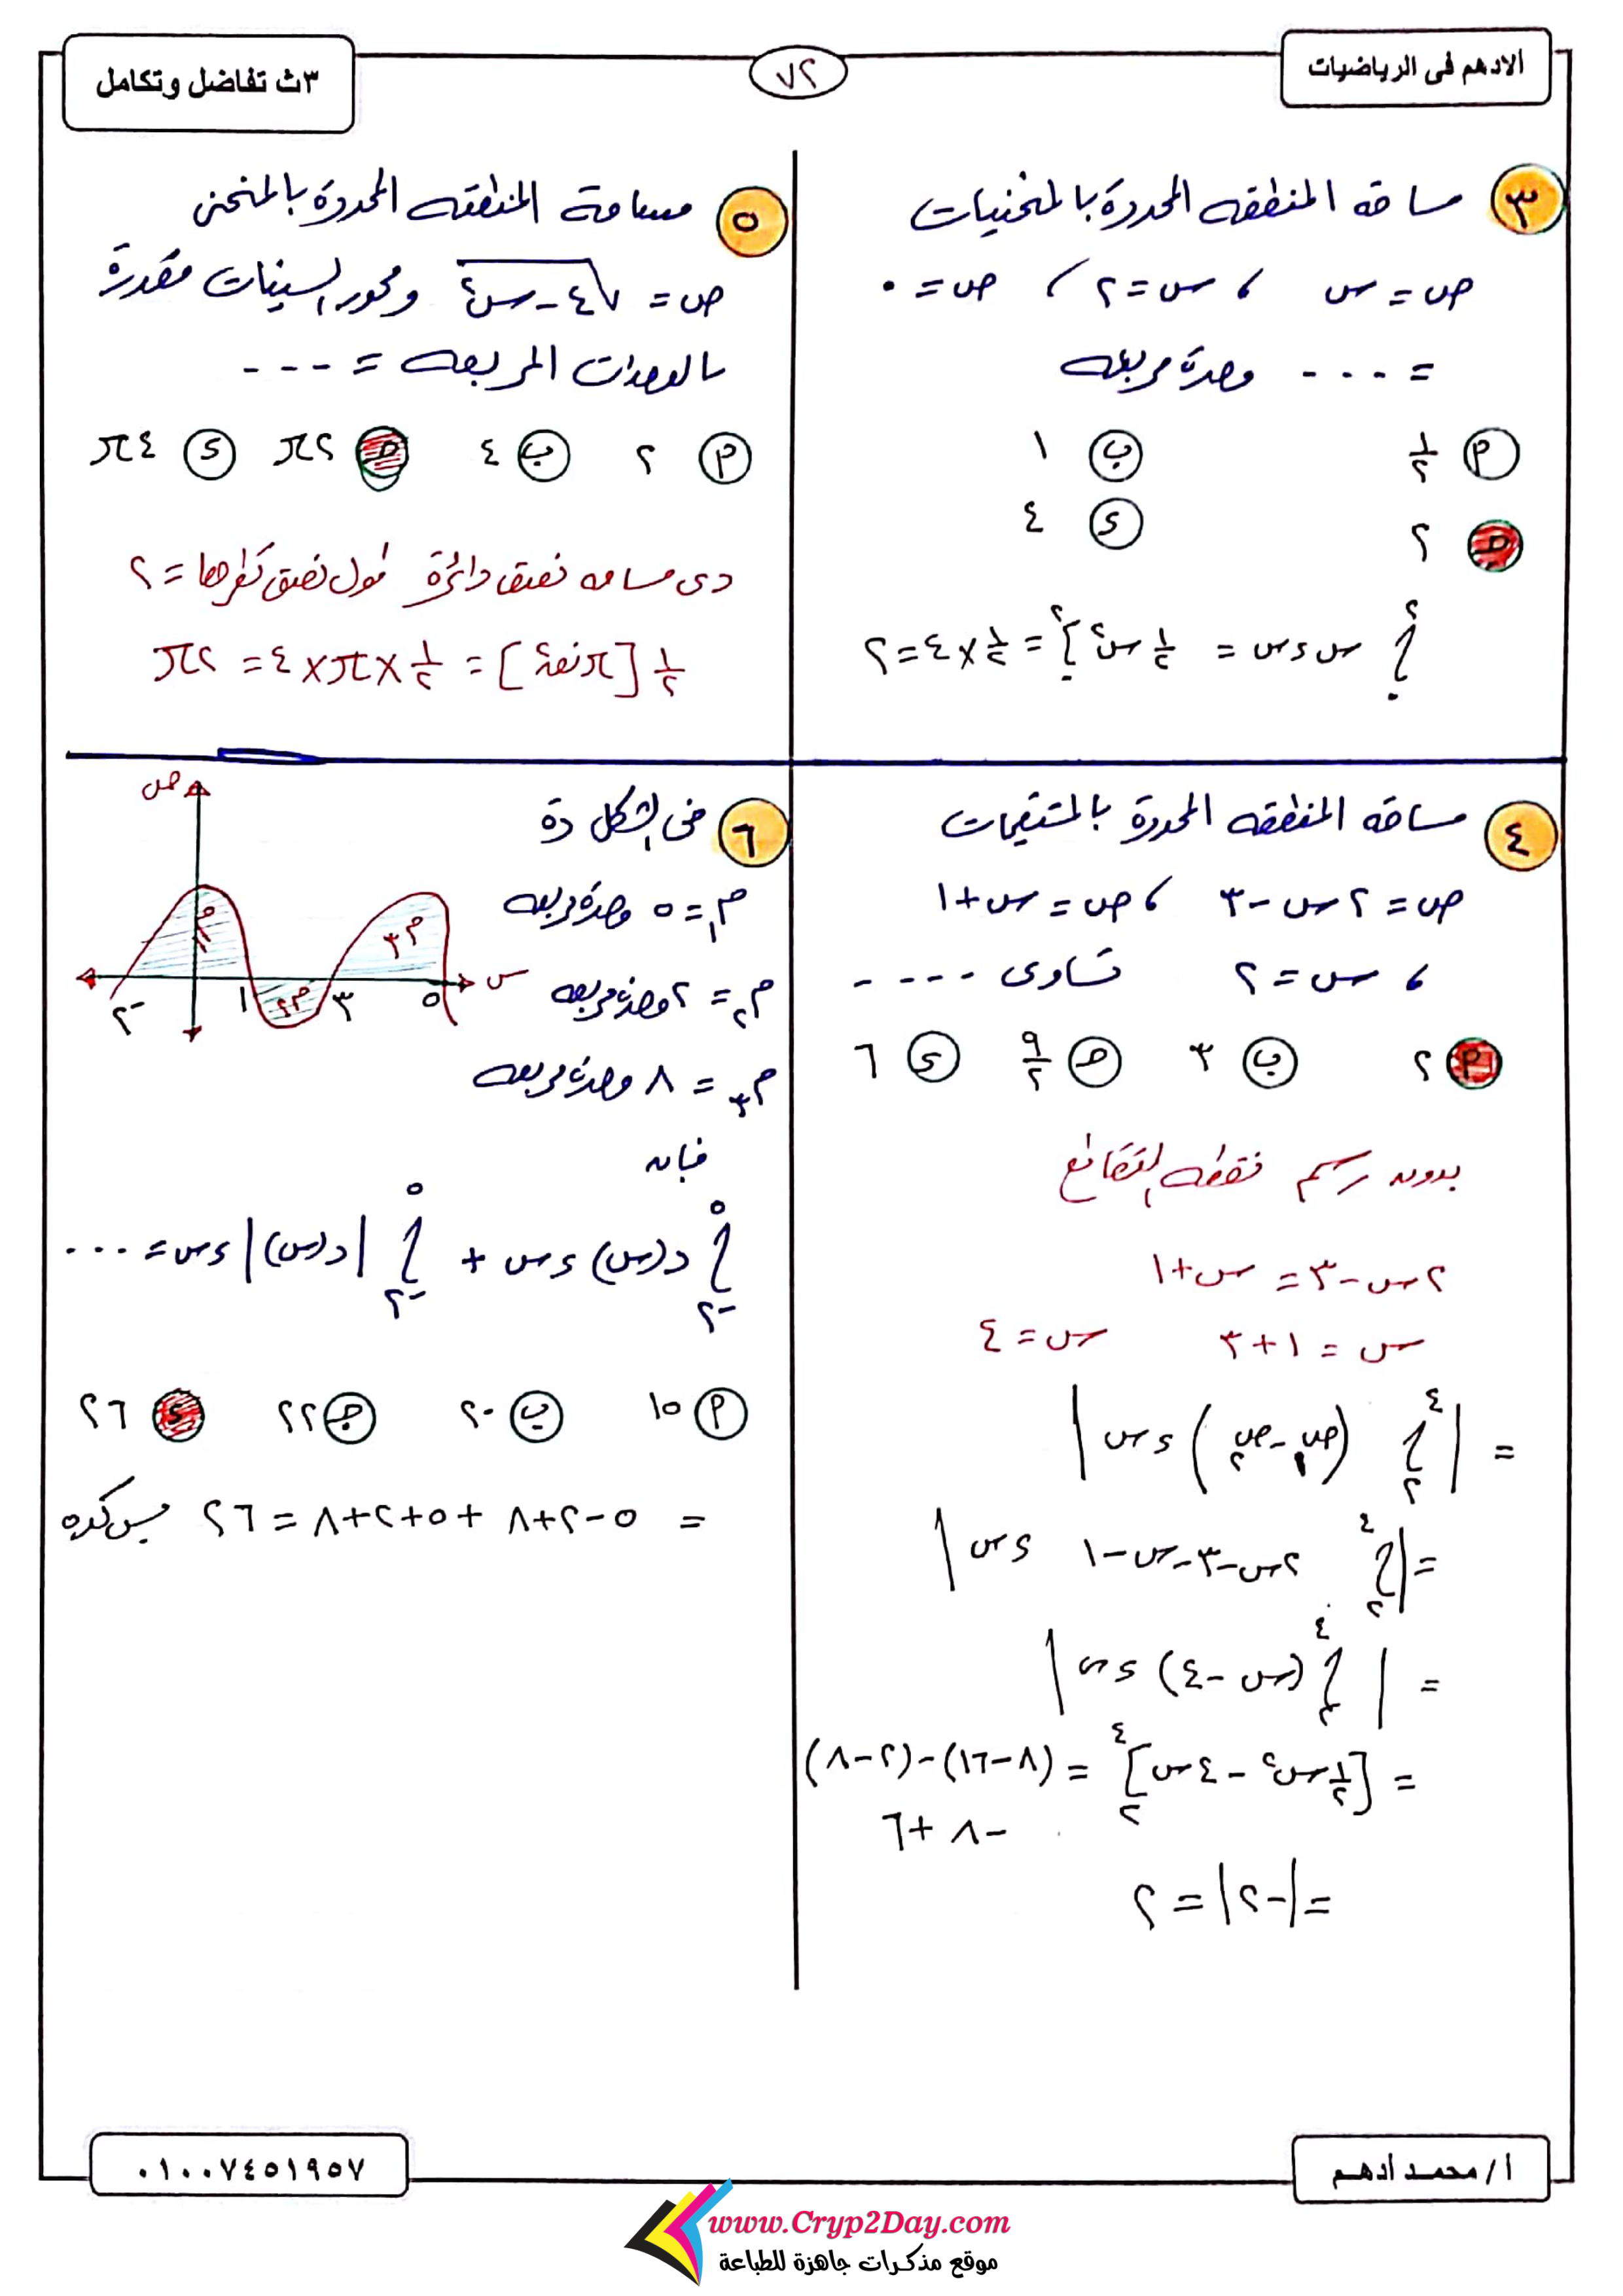 الادهم فى الرياضيات
٧٢
٣ث تفاضل وتكامل
٣ مساحة المنطقه المحددة بالمنحنيات
ص = س ، س = ٢ ، ص = ٠
= ... وحدة مربعه
م ١/٢
ب ١
ح ٢
ى ٤
∫٠^٢ س ء س = [١/٢ س٢]٠^٢ = ١/٢ × ٤ = ٢
٤ مساحه المنطقه المحددة بالمستقيمات
ص = ٢س - ٣ ، ص = س + ١
، س = ٢ تساوى ....
م ٢ ب ٣ ح ٩/٢ ى ٦
بدون رسم نقطه التقاطع
٢س - ٣ = س + ١
س = ١ + ٣ س = ٤
= |∫٢^٤ (ص١ - ص٢) ء س|
= |∫٢^٤ ٢س - ٣ - س - ١ ء س|
= |∫٢^٤ (س - ٤) ء س|
= [١/٢ س٢ - ٤س]٢^٤ = (٨ - ١٦) - (٢ - ٨)
-٨ + ٦
= |-٢| = ٢
٥ مساحة المنطقه المحددة بالمنحنى
ص = √(٤ - س٢) ومحور السينات مقدرة
بالوحدات المربعه = ---
م ٢ ب ٤ ح ٢π ى ٤π
دى مساحه نصف دائرة طول نصف قطرها = ٢
١/٢ [π نق٢] = ١/٢ × π × ٤ = ٢π
٦ فى الشكل دة
م١ = ٥ وحدة مربعه
م٢ = ٢ وحدة مربعه
م٣ = ٨ وحدة مربعه
فإن
∫-٢^٥ د(س) ء س + ∫-٢^٥ |د(س)| ء س = ...
م ١٥ ب ٢٠ ج ٢٢ ى ٢٦
= ٥ - ٢ + ٨ + ٥ + ٢ + ٨ = ٢٦ بس كده
ص
س
م١
م٢
م٣
-٢ ١ ٣ ٥
أ / محمد أدهم
٠١٠٠٧٤٥١٩٥٧
www.Cryp2Day.com
موقع مذكرات جاهزة للطباعة